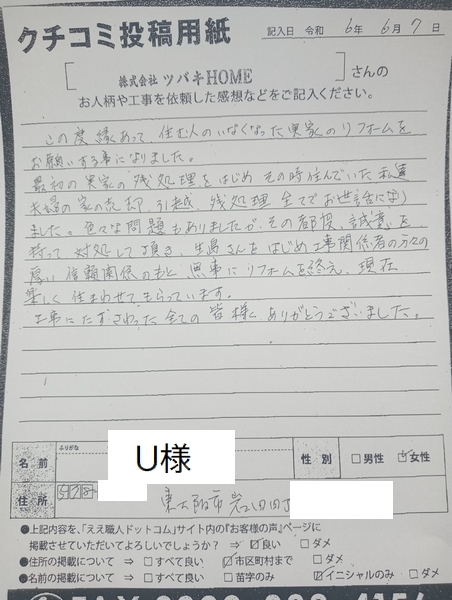 クチコミ投稿用紙
記入日 令和 6年 6月 7日
[株式会社 ツバキHOME]さんの
お人柄や工事を依頼した感想などをご記入ください。
この度縁あって、住む人のいなくなった実家のリフォームを
お願いする事になりました。
最初の実家の残処理をはじめその時住んでいた私達
夫婦の家の売却、引越、残処理全てでお世話になり
ました。色々な問題もありましたが、その都度、誠意を
持って対処して頂き、生島さんをはじめ工事関係者の方々の
厚い信頼関係のもと無事にリフォームを終え、現在
楽しく住まわせてもらっています。
工事にたずさわった全ての皆様にありがとうございました。
ふりがな
名前 U様 性別 □男性 ☑女性
住所 東大阪市岩田町
●上記内容を、「ええ職人ドットコム」サイト内の『お客様の声』ページに
掲載させていただいてよろしいでしょうか? ⇒ ☑良い □ダメ
●住所の掲載について ⇒ □すべて良い ☑市区町村まで □ダメ
●名前の掲載について ⇒ □すべて良い □苗字のみ ☑イニシャルのみ □ダメ